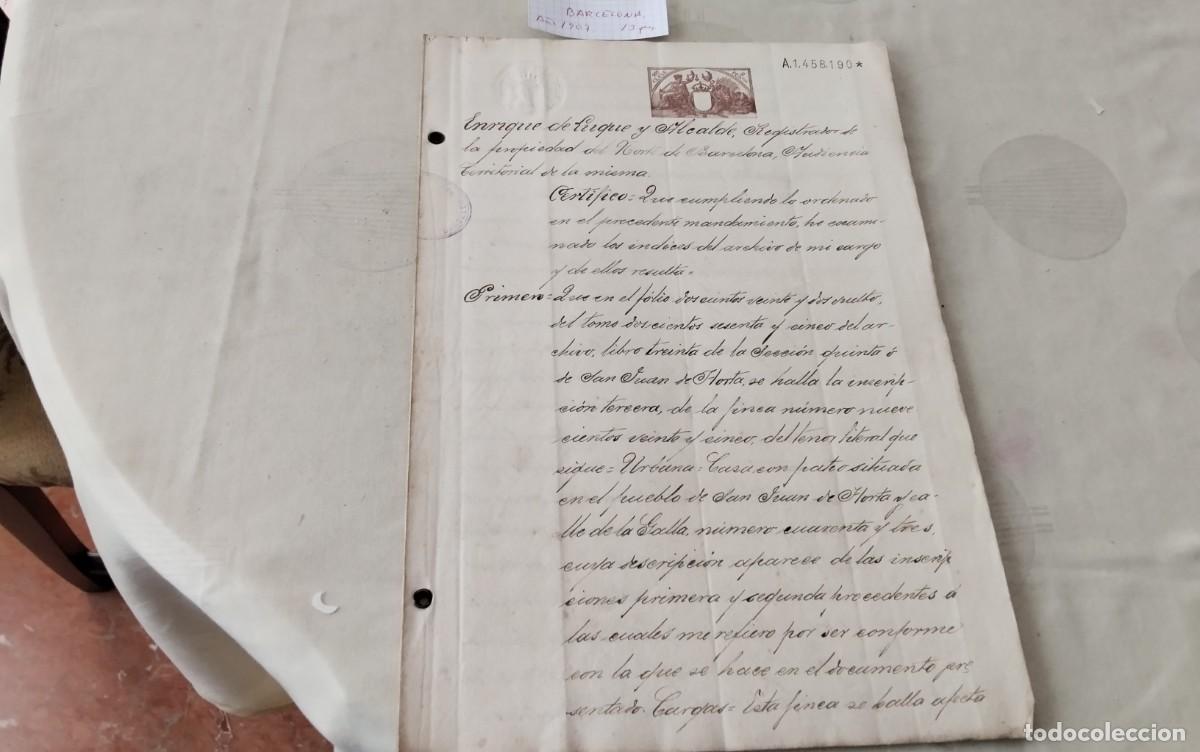 BARCELONA,
Año 1909
A.1.458.190*
Enrique de Luque y Alcalde, Registrador de
la propiedad del Norte de Barcelona, Audiencia
Territorial de la misma.
Certifico = Que cumpliendo lo ordenado
en el precedente mandamiento, he exami-
nado los indices del archivo de mi cargo
y de ellos resulta =
Primero = Que en el fólio doscientos veinte y dos vuelto,
del tomo doscientos sesenta y cinco del ar-
chivo, libro treinta de la Sección quinta ó
de San Juan de Horta, se halla la inscrip-
ción tercera, de la finca número nueve
cientos veinte y cinco, del tenor literal que
sigue = Urbana = Casa con patio situada
en el pueblo de San Juan de Horta y ca-
lle de la Galla, número cuarenta y tres,
cuya descripción aparece de las inscrip
ciones primera y segunda precedentes á
las cuales me refiero por ser conforme
con la que se hace en el documento pre
sentado. Cargas = Esta finca se halla afecta
todocoleccion